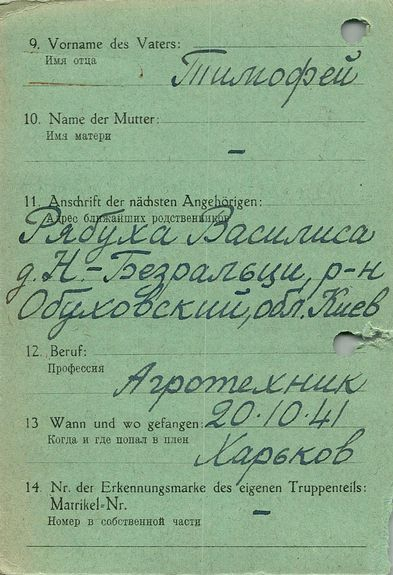 9. Vorname des Vaters:
Имя отца
Тимофей
10. Name der Mutter:
Имя матери
–
11. Anschrift der nächsten Angehörigen:
Адрес ближайших родственников
Рябуха Василиса
д. Н.-Безральцы, р-н
Обуховский, обл. Киев
12. Beruf:
Профессия
Агротехник
13 Wann und wo gefangen: 20.10.41
Когда и где попал в плен
Харьков
14. Nr. der Erkennungsmarke des eigenen Truppenteils:
Matrikel-Nr.
Номер в собственной части
–